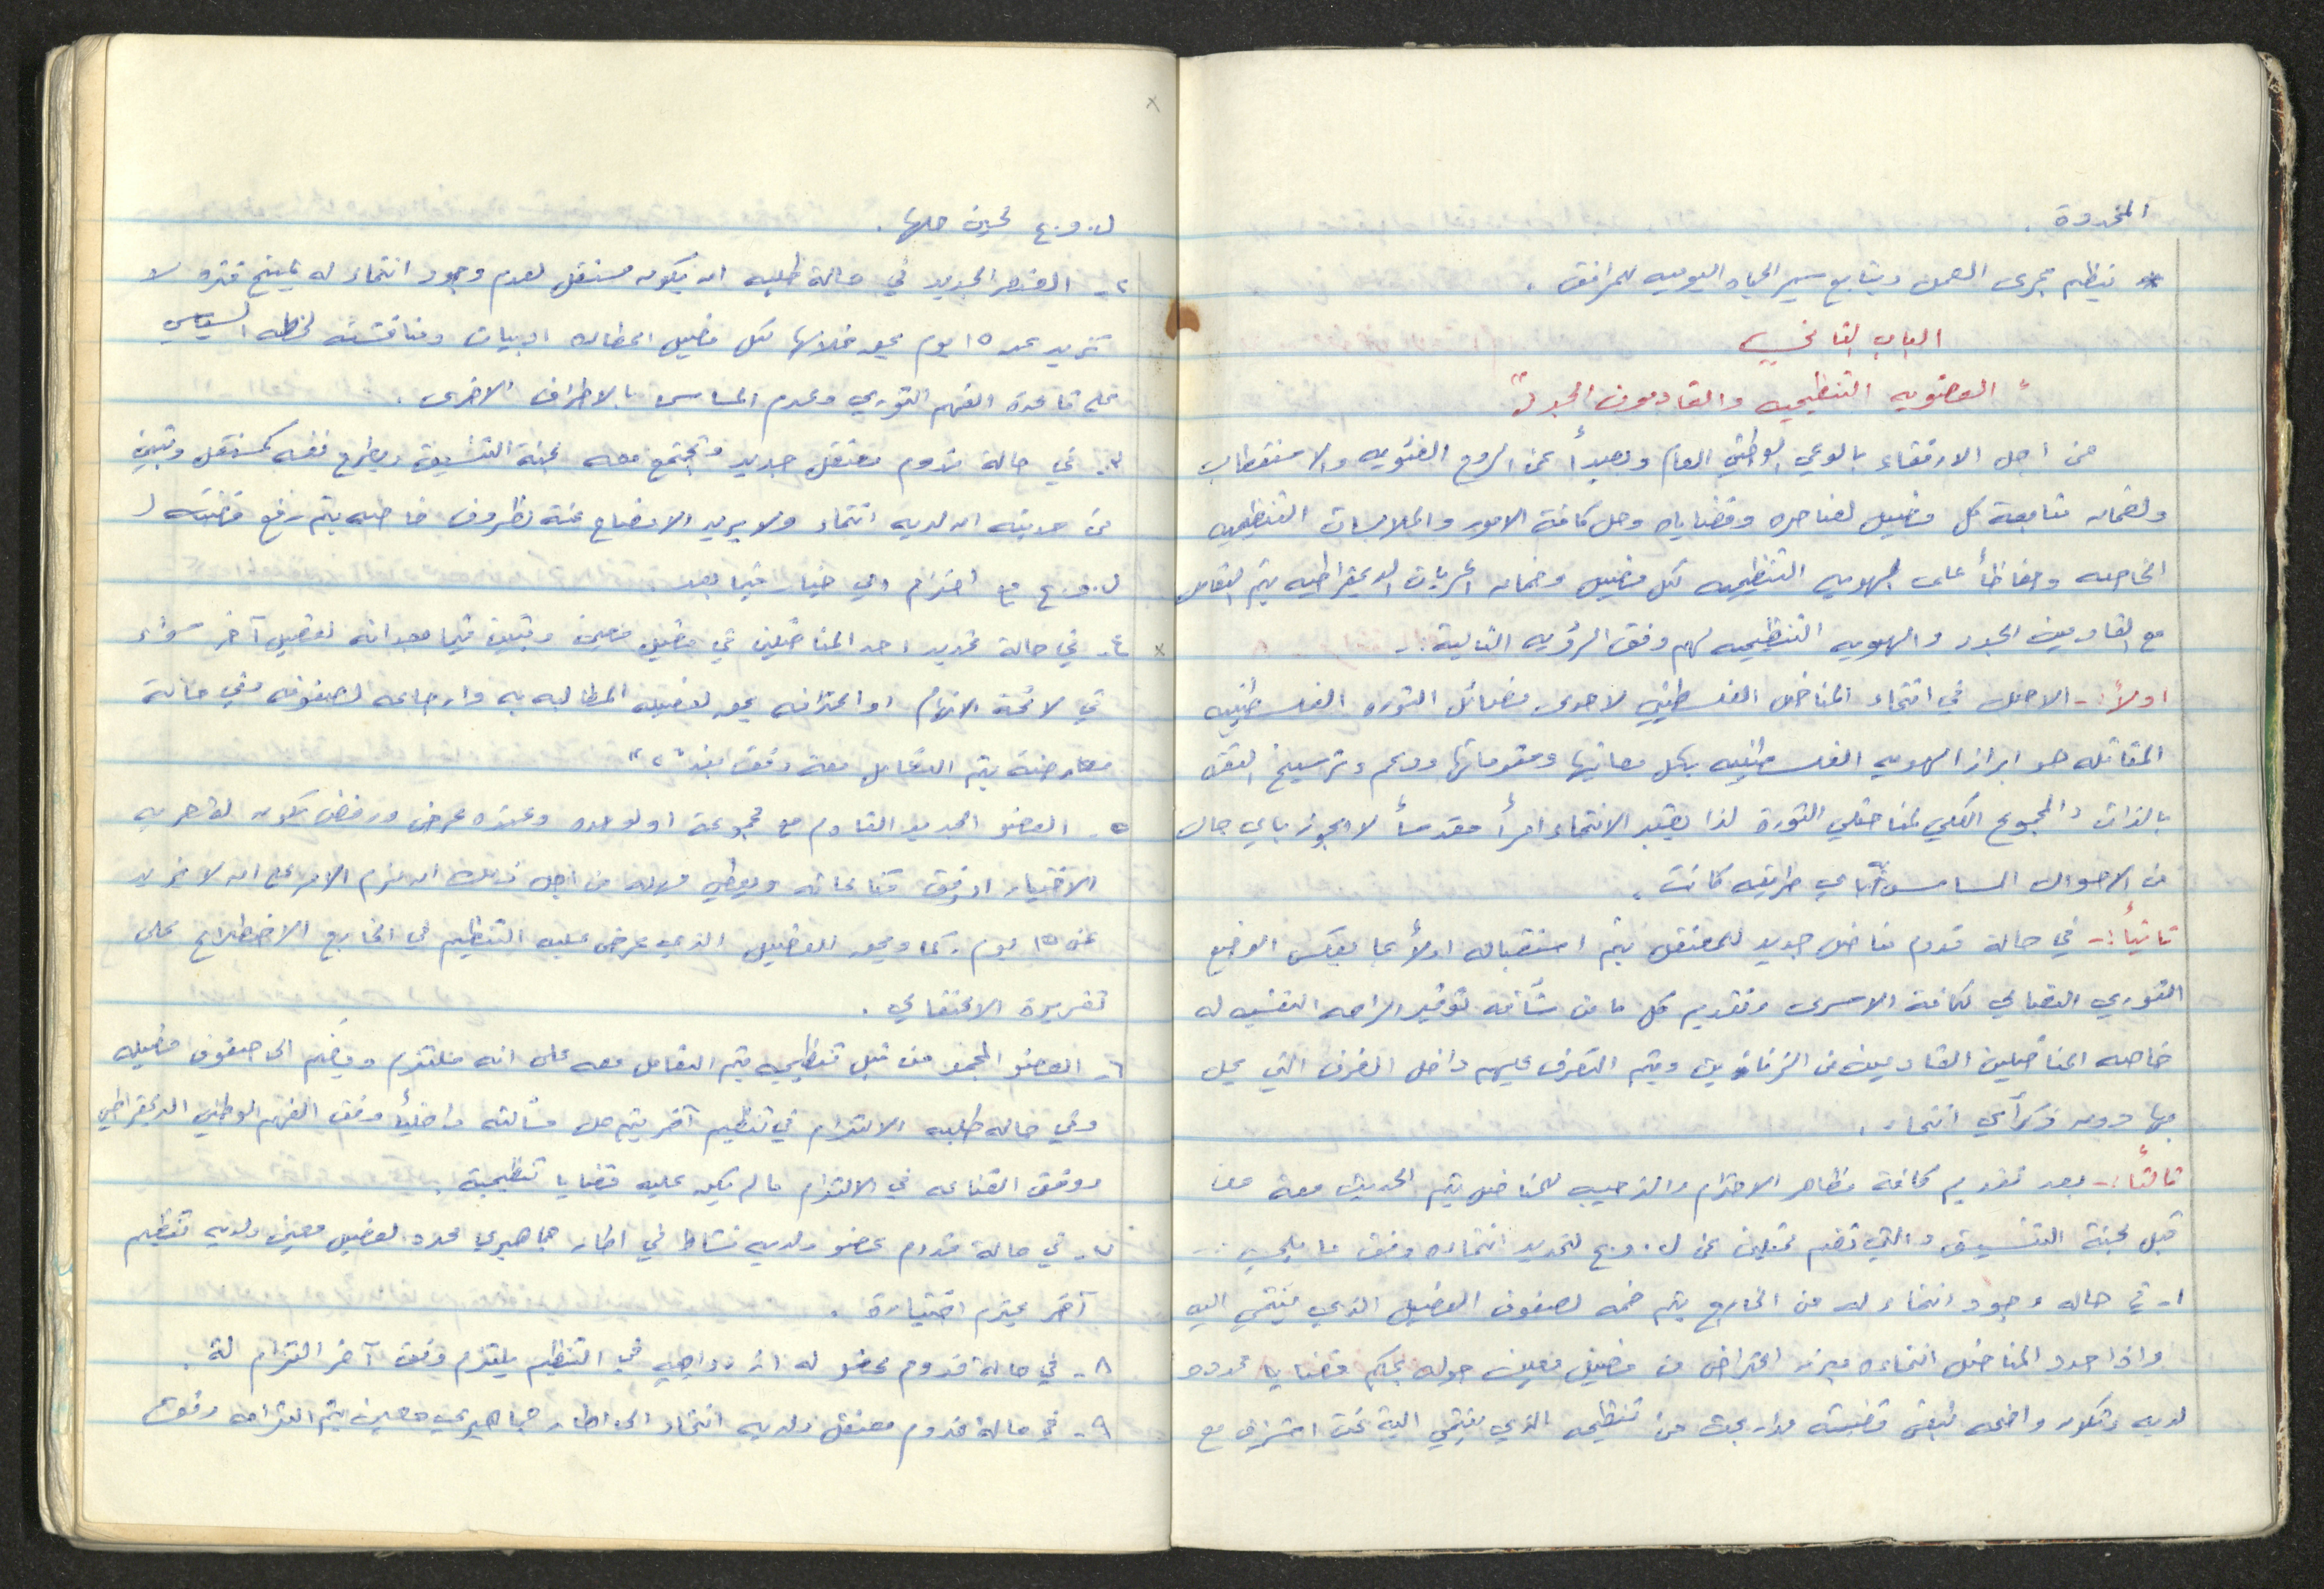 المحدودة.
* تنظيم مجرى العمل ويتابع سير الحياه اليوميه للمرافق.
الباب الثاني
" العضويه التنظيميه والقادمون الجدد "
من اجل الارتقاء بالوعي الوطني العام وبعيداً عن الروح الفئويه والاستقطاب
ولضمان متابعة كل فصيل لعناصره وقضاياه وحل كافة الامور والملابسات التنظيميه
الخاصه وحفاظاً على الهويه التنظيميه لكل فصيل وضمان الحريات الديمقراطيه يتم التعامل
مع القادمين الجدد والهويه التنظيميه لهم وفق الرؤيه التالية:-
اولاً:- الاصل في انتماء المناضل الفلسطيني لاحدى فصائل الثوره الفلسطينيه
المقاتله هو ابراز الهويه الفلسطينيه بكل معانيها ومقوماتها ودعم وترسيخ الثقه
بالذات والمجموع الكلي لمناضلي الثورة لذا يعتبر الانتماء امراً مقدساً لا يجوز باي حال
من الاحوال المساس به باي طريقه كانت.
ثانياً:- في حالة قدوم مناضل جديد للمعتقل يتم استقباله اولاً بما يعكس الوضع
الثوري النضالي لكافة الاسرى وتقديم كل ما من شأنه توفير الراحه النفسيه له
خاصه المناضلين القادمين من الزنازين ويتم التعرف عليهم داخل الغرف التي يحل
بها دون ذكر أي انتماء.
ثالثاً:- بعد تقديم كافة مظاهر الاحترام والترحيب للمناضل يتم الحديث معه من
قبل لجنة التنسيق والتي تضم ممثلين عن ل.و.ع لتحديد انتماءه وفق ما يلي:-
١- في حاله وجود انتماء له من الخارج يتم ضمه لصفوف الفصيل الذي ينتمي اليه
واذا حدد المناضل انتماءه وبرز اعتراض من فصيل معين حوله بحكم قضايا محدده
لديه وتكون واضحه تبقى قضيته مدار بحث من تنظيمه الذي ينتمي الية تحت اشراف مع
ل.و.ع لحين حلها.
٢- العنصر الجديد في حالة طلبه ان يكون مستقل لعدم وجود انتماء له يمنح فتره لا
تزيد عن ١٥ يوم يحق خلالها لكل فصيل اعطائه ادبيات ومناقشته لخطه السياسي
على قاعدة الفهم الثوري وعدم المساس بالاطراف الاخرى.
٣- في حالة قدوم معتقل جديد وتجتمع معه لجنة التنسيق ويطرح نفسه كمستقل وتبين
من حديثه ان لديه انتماء ولا يريد الافصاح عنه لظروف خاصه يتم رفع قضيته ل
ل.و.ع مع احترام اي خيار فيما بعد.
٤- في حالة تحديد احد المناضلين في فصيل معين وتبين فيما بعد انه لفصيل آخر سواء
في لائحة الاتهام او اعترافه يحق لفصيله المطالبه به وارجاعه لصفوفه وفي حالة
معارضته يتم التعامل معه وفق بند "٢"
٥- العضو الجديد القادم مع مجموعة او لوحده وعنده عرض ورفض تكون له حريه
الاختيار او وفق قناعاته ويعطى مهله من اجل ذلك ان لزم الامر على ان لا تزيد
عن ١٥ يوم. كما ويحق للفصيل الذي عرض عليه التنظيم في الخارج الاضطلاع على
تقريرة الاعتقالي.
٦- العضو المجمد من قبل تنظيمه يتم التعامل معه على انه ملتزم وينضم الى صفوف فصيله
وفي حاله طلبه الالتزام في تنظيم آخر يتم حل مسألته داخلياً وفق الفهم الوطني الديمقراطي
ووفق القناعه في الالتزام ما لم يكن عليه قضايا تنظيمية.
٧- في حالة قدوم عضو ولديه نشاط في اطار جماهيري محدد لفصيل معين ولديه تنظيم
آخر يحترم اختيارة.
٨- في حالة قدوم عضو له ازدواجيه في التنظيم يلتزم وفق آخر التزام له.
٩- في حالة قدوم معتقل ولديه انتماء الى اطار جماهيري معين يتم التزامه وفق